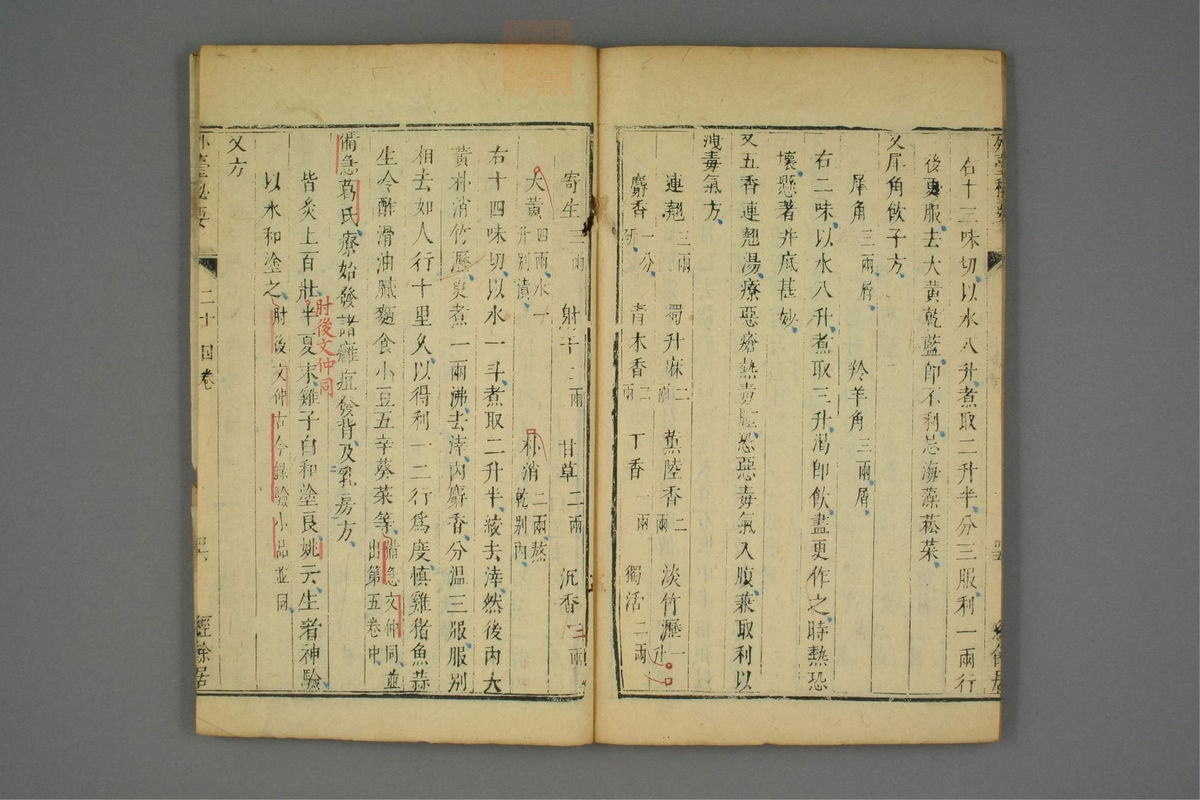 右十三味切以水八升煮取二升半分三服利一兩行
後更服去大黃乾藍卽不利忌海藻菘菜
又犀角飲子方
犀角三兩屑 羚羊角三兩屑
右二味以水八升煮取三升渴卽飲盡更作之時熱恐
壞懸著井底甚妙
又五香連翹湯療惡瘡熱毒腫恐惡毒氣入腹兼取利以
洩毒氣方
連翹三兩 蜀升麻二兩 薰陸香二兩 淡竹瀝一升
麝香一分研 青木香二兩 丁香一兩 獨活二兩
寄生三兩 射干二兩 甘草二兩 沉香二兩
大黃四兩水一升別漬 朴消二兩熬乾別內
右十四味切以水一斗煮取二升半綾去滓然後內大
黃朴消竹瀝更煮一兩沸去滓內麝香分溫三服服別
相去如人行十里久以得利一二行爲度慎雞豬魚蒜
生令酢滑油膩麵食小豆五辛葵菜等備急文仲同並出第五卷中
備急葛氏療始發諸癰疽發背及乳房方
皆灸上百壯半夏末雞子白和塗良姚云生者神驗
肘後文仲同
以水和塗之肘後文仲古今錄驗小品並同
又方
外臺秘要 二十四卷 經餘居